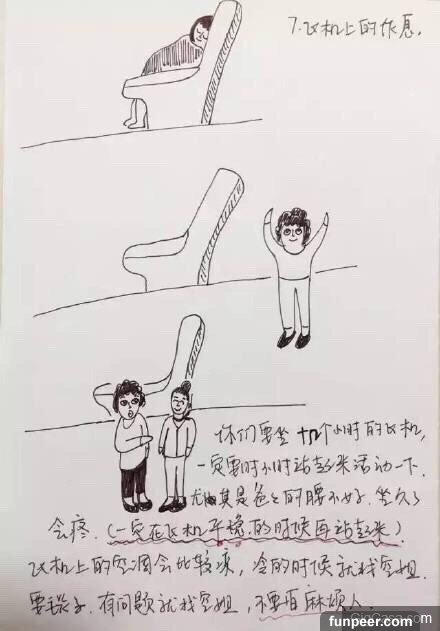 7.飞机上的作息。
你们要坐十几个小时的飞机,
一定要时不时站起来活动一下.
尤其是爸爸的腰不好.坐久了
会疼.(一定在飞机平稳的时候再站起来)
飞机上的空调会比较凉,冷的时候就找空姐
要毯子.有问题就找空姐,不要怕麻烦人.
funpeer.com